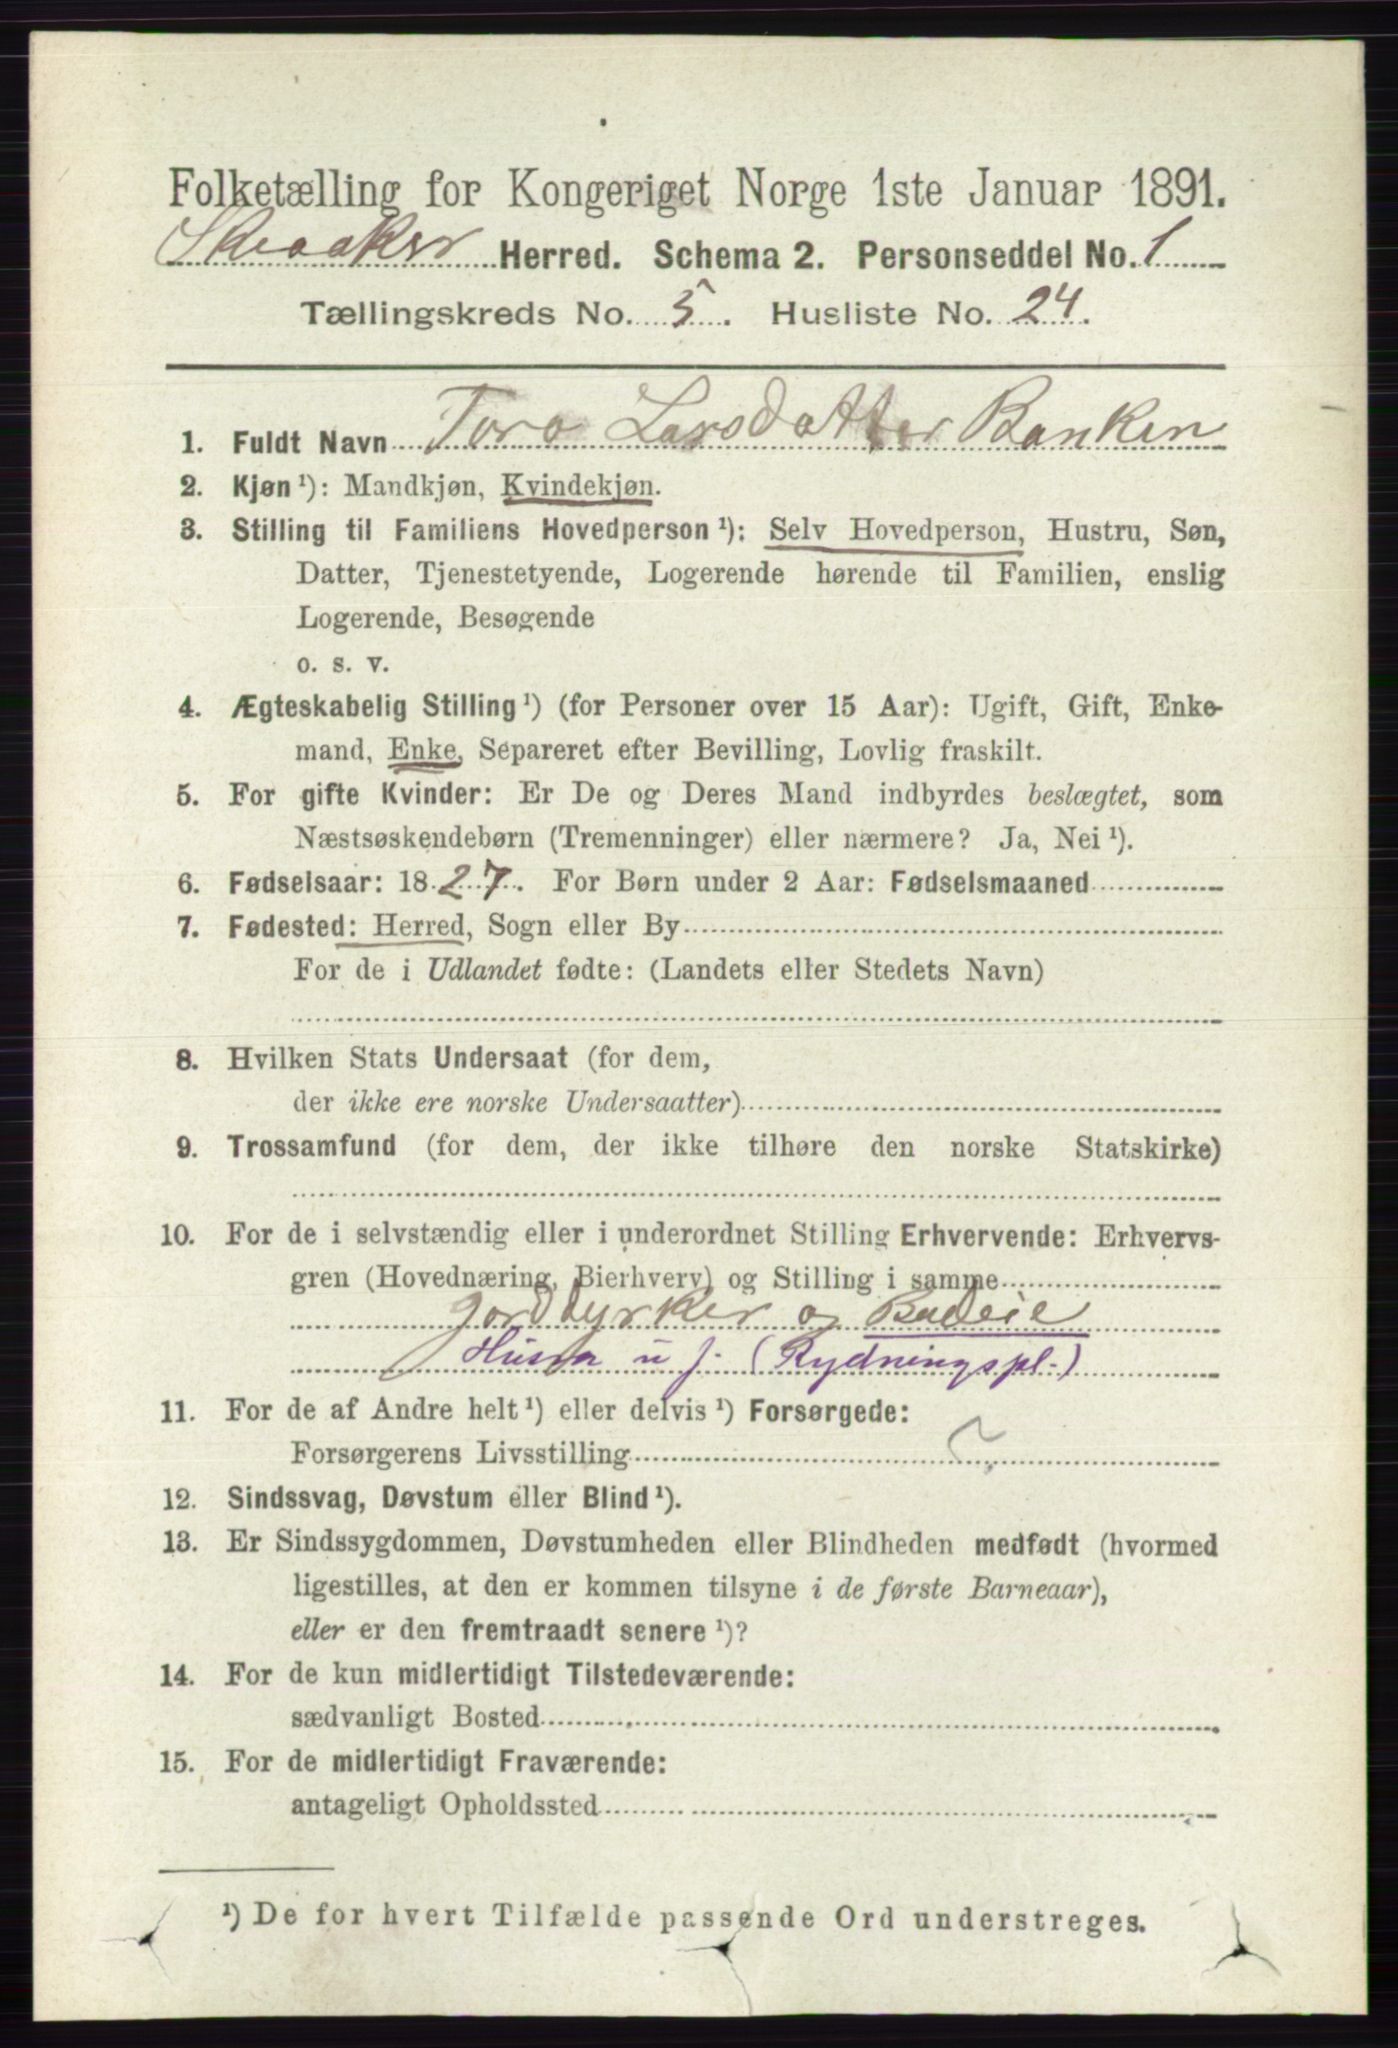 Folketælling for Kongeriget Norge 1ste Januar 1891.
Skiaaker Herred. Schema 2. Personseddel No. 1
Tællingskreds No. 5. Husliste No. 24.
1. Fuldt Navn Toro Larsdatter Banken
2. Kjøn ¹): Mandkjøn, Kvindekjøn.
3. Stilling til Familiens Hovedperson ¹): Selv Hovedperson, Hustru, Søn,
Datter, Tjenestetyende, Logerende hørende til Familien, enslig
Logerende, Besøgende
o. s. v.
4. Ægteskabelig Stilling ¹) (for Personer over 15 Aar): Ugift, Gift, Enke-
mand, Enke, Separeret efter Bevilling, Lovlig fraskilt.
5. For gifte Kvinder: Er De og Deres Mand indbyrdes beslægtet, som
Næstsøskendebørn (Tremenninger) eller nærmere? Ja, Nei ¹).
6. Fødselsaar: 1827. For Børn under 2 Aar: Fødselsmaaned
7. Fødested: Herred, Sogn eller By
For de i Udlandet fødte: (Landets eller Stedets Navn)
8. Hvilken Stats Undersaat (for dem,
der ikke ere norske Undersaatter)
9. Trossamfund (for dem, der ikke tilhøre den norske Statskirke)
10. For de i selvstændig eller i underordnet Stilling Erhvervende: Erhvervs-
gren (Hovednæring, Bierhverv) og Stilling i samme
Jordbyrker og Budeie
Husm u j. (Rydningspl.)
11. For de af Andre helt ¹) eller delvis ¹) Forsørgede:
Forsørgerens Livsstilling ?
12. Sindssvag, Døvstum eller Blind ¹).
13. Er Sindssygdommen, Døvstumheden eller Blindheden medfødt (hvormed
ligestilles, at den er kommen tilsyne i de første Barneaar),
eller er den fremtraadt senere ¹)?
14. For de kun midlertidigt Tilstedeværende:
sædvanligt Bosted
15. For de midlertidigt Fraværende:
antageligt Opholdssted
¹) De for hvert Tilfælde passende Ord understreges.